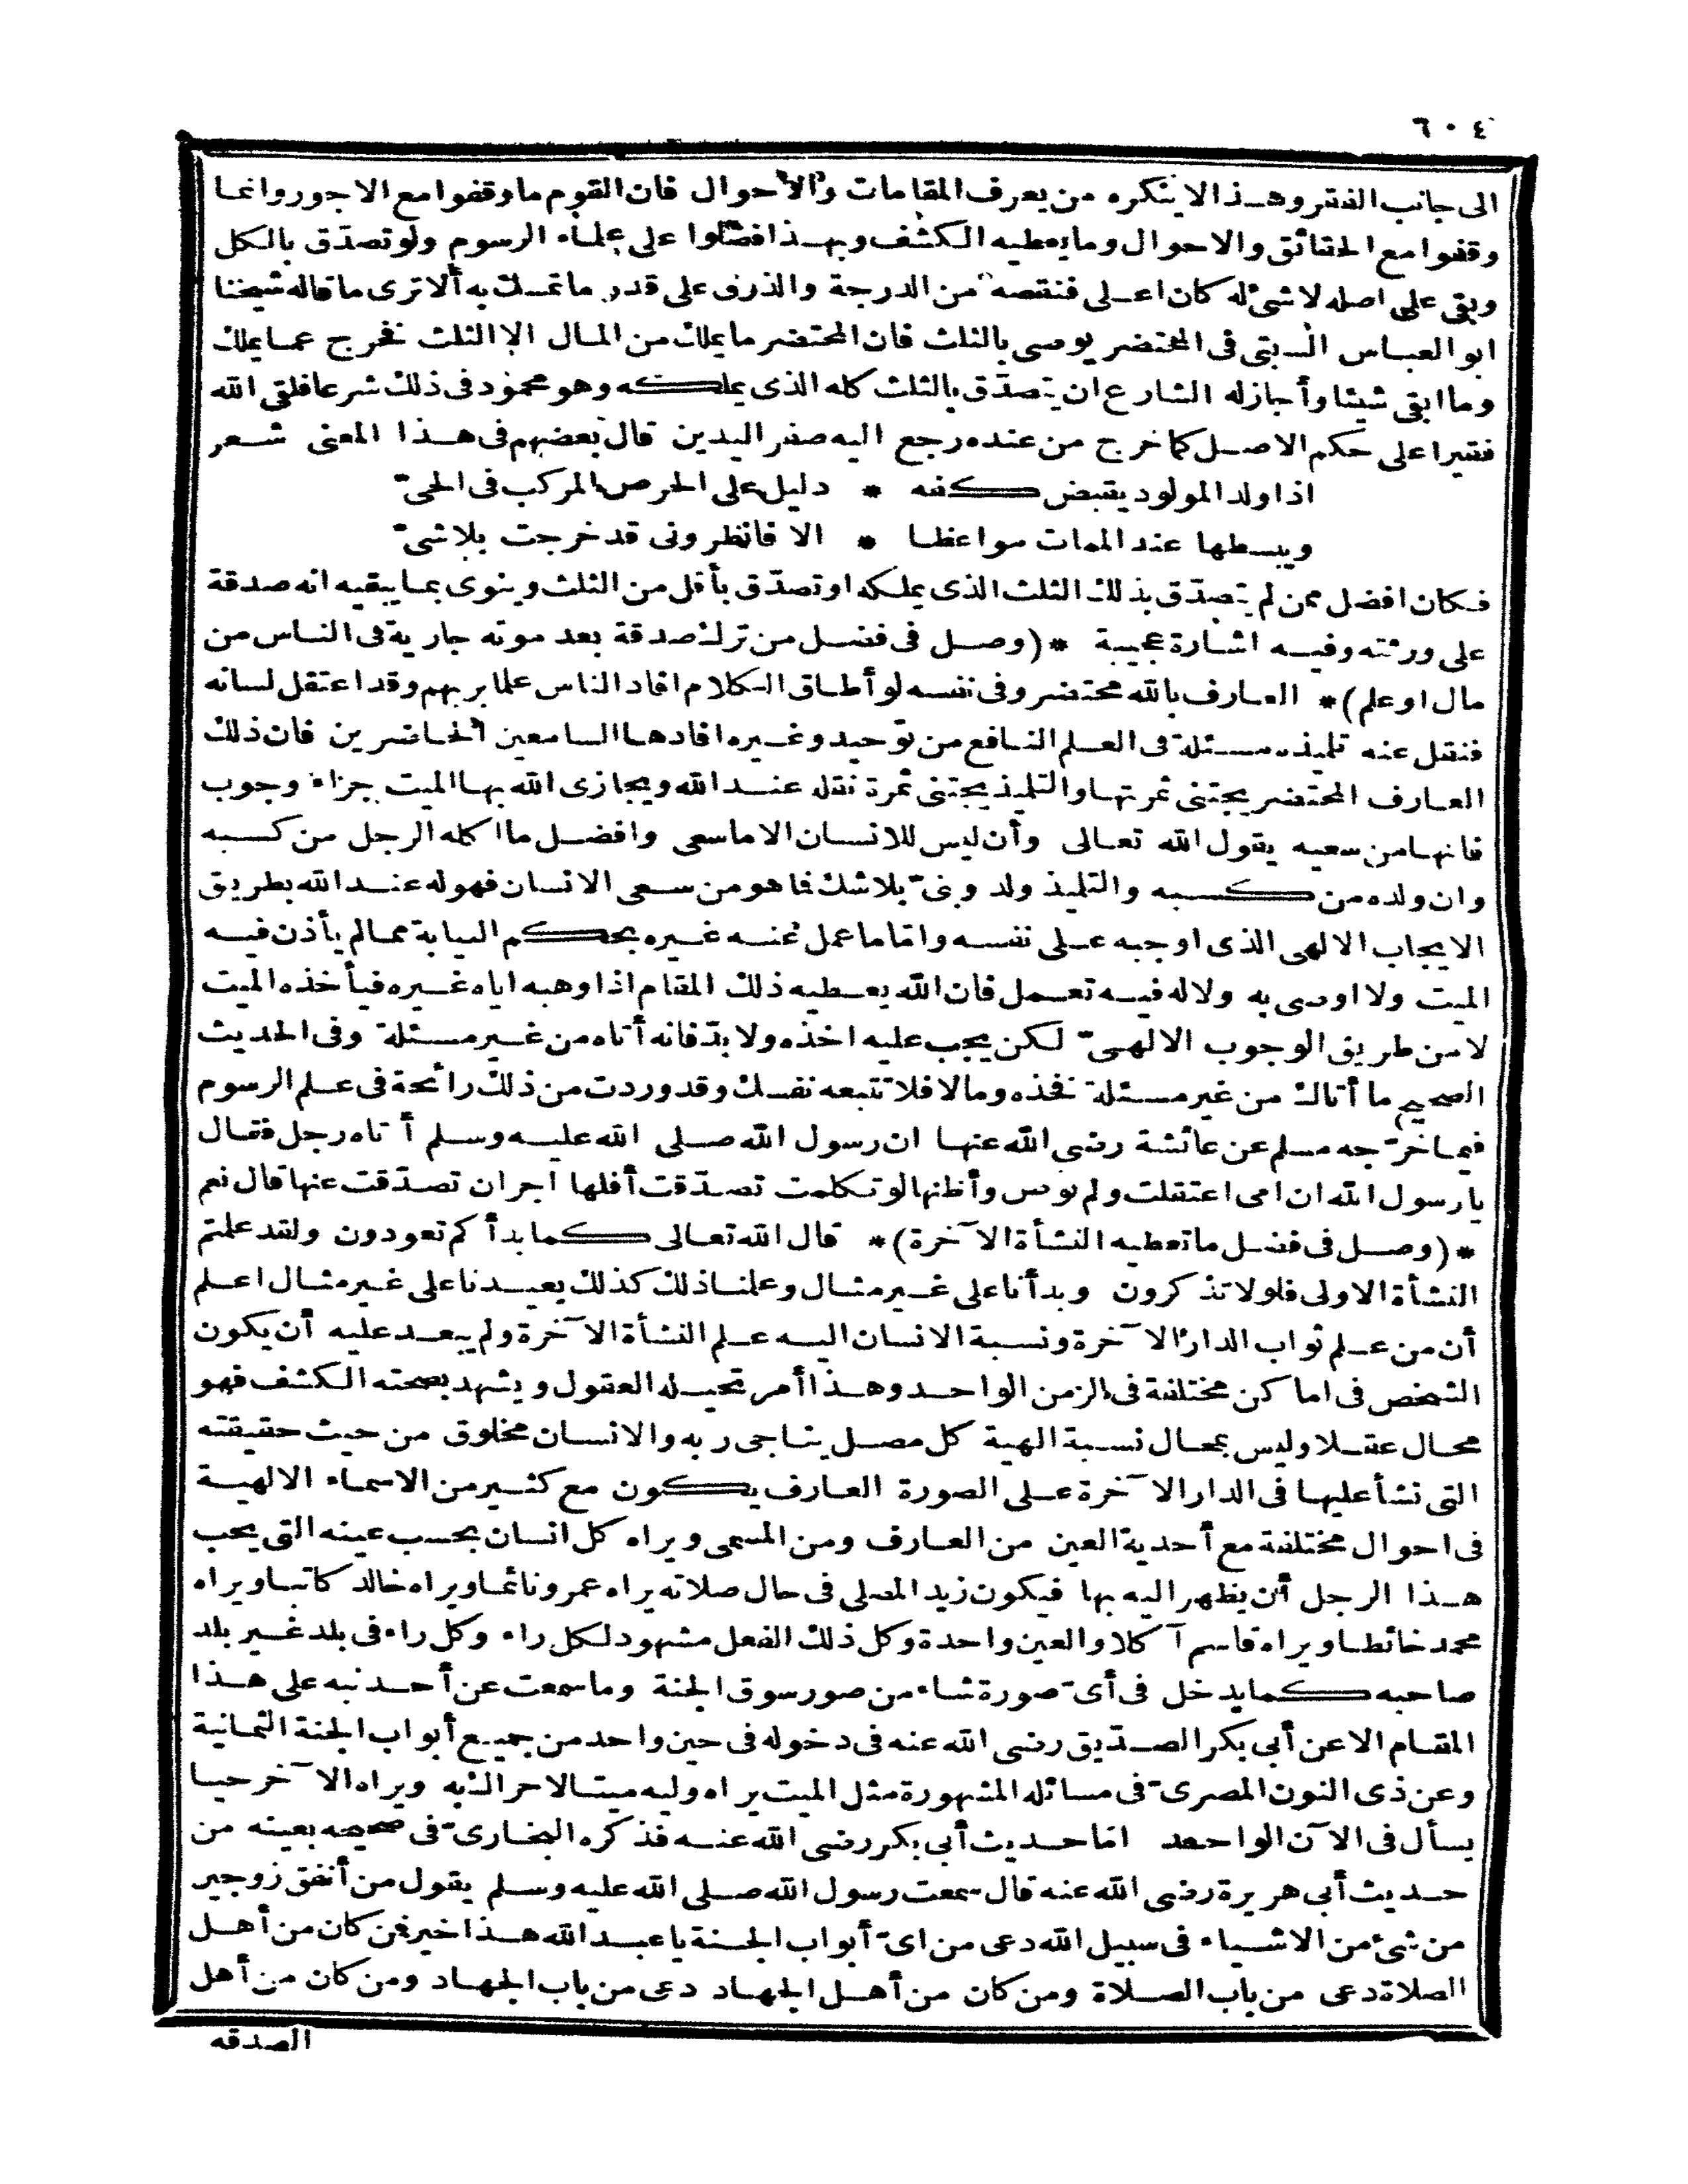 ٦٠٤
الى جانب الفقر وهذا لا ينكره من يعرف المقامات والاحوال فان القوم ما وقفوا مع الاجور وانما
وقفوا مع الحقائق والاحوال وما يعطيه الكشف وبهذا فضلوا على علماء الرسوم ولو تصدّق بالكل
وبقى على اصله لا شئ له كان اعلى فنقصه من الدرجة والذوق على قدر ما تمسك به ألا ترى ما قاله شيخنا
ابو العباس السبتى فى المحتضر يوصى بالثلث فان المحتضر ما يملك من المال الا الثلث فخرج عما يملك
وما ابقى شيئا وأجاز له الشارع ان يتصدّق بالثلث كله الذى يملكه وهو محمود فى ذلك شرعا فلقى الله
فقيرا على حكم الاصل كما خرج من عنده رجع اليه صفر اليدين قال بعضهم فى هذا المعنى شعر
اذا ولد المولود يقبض كفه * دليل على الحرص المركب فى الحىّ
ويبسطها عند الممات مواعظا * الا فانظرونى قد خرجت بلا شىّ
فكان افضل ممن لم يتصدّق بذلك الثلث الذى يملكه او تصدّق بأقل من الثلث وينوى بما يبقيه انه صدقة
على ورثته وفيه اشارة عجيبة *(وصل فى فضل من ترك صدقة بعد موته جارية فى الناس من
مال او علم)* العارف بالله محتضر وفى نفسه لو أطاق الكلام افاد الناس علما بربهم وقد اعتقل لسانه
فنقل عنه تلميذه مسئلة فى العلم النافع من توحيد وغيره افادها السامعين الحاضرين فان ذلك
العارف المحتضر يجتنى ثمرتها والتلميذ يجتنى ثمرة نقله عند الله ويجازى الله بها الميت جزاء وجوب
فانها من سعيه يقول الله تعالى وأن ليس للانسان الا ما سعى وافضل ما اكله الرجل من كسبه
وان ولده من كسبه والتلميذ ولد وبنىّ بلا شك فما هو من سعى الانسان فهو له عند الله بطريق
الايجاب الالهى الذى اوجبه على نفسه وامّا ما عمل عنه غيره بحكم النيابة مما لم يأذن فيه
الميت ولا اوصى به ولا له فيه تعمل فان الله يعطيه ذلك المقام اذا وهبه اياه غيره فيأخذه الميت
لا من طريق الوجوب الالهىّ لكن يجب عليه اخذه ولا بدّ فانه أتاه من غير مسئلة وفى الحديث
الصحيح ما أتاك من غير مسئلة فخذه وما لا فلا تتبعه نفسك وقد وردت من ذلك رائحة فى علم الرسوم
فيما خرّجه مسلم عن عائشة رضى الله عنها ان رسول الله صلى الله عليه وسلم أتاه رجل فقال
يا رسول الله ان امى اعتقلت ولم توص وأظنها لو تكلمت تصدّقت أفلها اجر ان تصدّقت عنها قال نعم
*(وصل فى فضل ما تعطيه النشأة الآخرة)* قال الله تعالى كما بدأكم تعودون ولقد علمتم
النشأة الاولى فلولا تذكرون وبدأنا على غير مثال وعلمنا ذلك كذلك يعيدنا على غير مثال اعلم
أن من علم ثواب الدار الآخرة ونسبة الانسان اليه علم النشأة الآخرة ولم يبعد عليه أن يكون
الشخص فى اماكن مختلفة فى الزمن الواحد وهذا أمر تحيله العقول ويشهد بصحته الكشف فهو
محال عقلا وليس بمحال نسبة الهية كل مصل يناجى ربه والانسان مخلوق من حيث حقيقته
التى نشأ عليها فى الدار الآخرة على الصورة العارف يكون مع كثير من الاسماء الالهية
فى احوال مختلفة مع أحدية العين من العارف ومن المسمى ويراه كل انسان بحسب عينه التى يحب
هذا الرجل أن يظهر اليه بها فيكون زيد المصلى فى حال صلاته يراه عمرو نائما ويراه خالد كاتبا ويراه
محمد خائطا ويراه قاسم آكلا والعين واحدة وكل ذلك الفعل مشهود لكل راء وكل راء فى بلد غير بلد
صاحبه كما يدخل فى أىّ صورة شاء من صور سوق الجنة وما سمعت عن أحد نبه على هذا
المقام الا عن أبى بكر الصدّيق رضى الله عنه فى دخوله فى حين واحد من جميع أبواب الجنة الثمانية
وعن ذى النون المصرىّ فى مسائله المشهورة مثل الميت يراه وليه ميتا لا حراك به ويراه الآخر حيا
يسأل فى الآن الواحد امّا حديث أبى بكر رضى الله عنه فذكره البخارىّ فى صحيحه بعينه من
حديث أبى هريرة رضى الله عنه قال سمعت رسول الله صلى الله عليه وسلم يقول من أنفق زوجين
من شئ من الاشياء فى سبيل الله دعى من اىّ أبواب الجنة يا عبد الله هذا خير فمن كان من أهل
الصلاة دعى من باب الصلاة ومن كان من أهل الجهاد دعى من باب الجهاد ومن كان من أهل
الصدقه